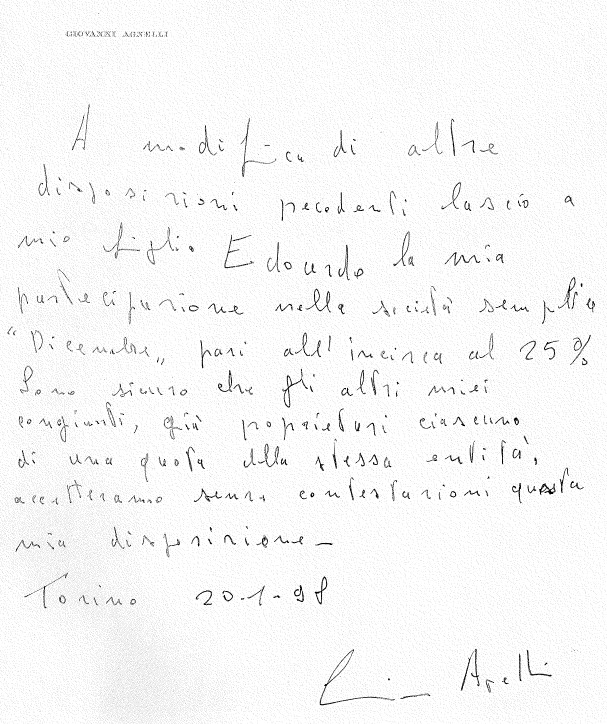 GIOVANNI AGNELLI
A modifica di altre
disposizioni precedenti lascio a
mio figlio Edoardo la mia
partecipazione nella società semplice
"Dicembre„ pari all'incirca al 25%
Sono sicuro che gli altri miei
congiunti, già proprietari ciascuno
di una quota della stessa entità,
accetteranno senza contestazioni questa
mia disposizione–
Torino 20-1-98
Agnelli